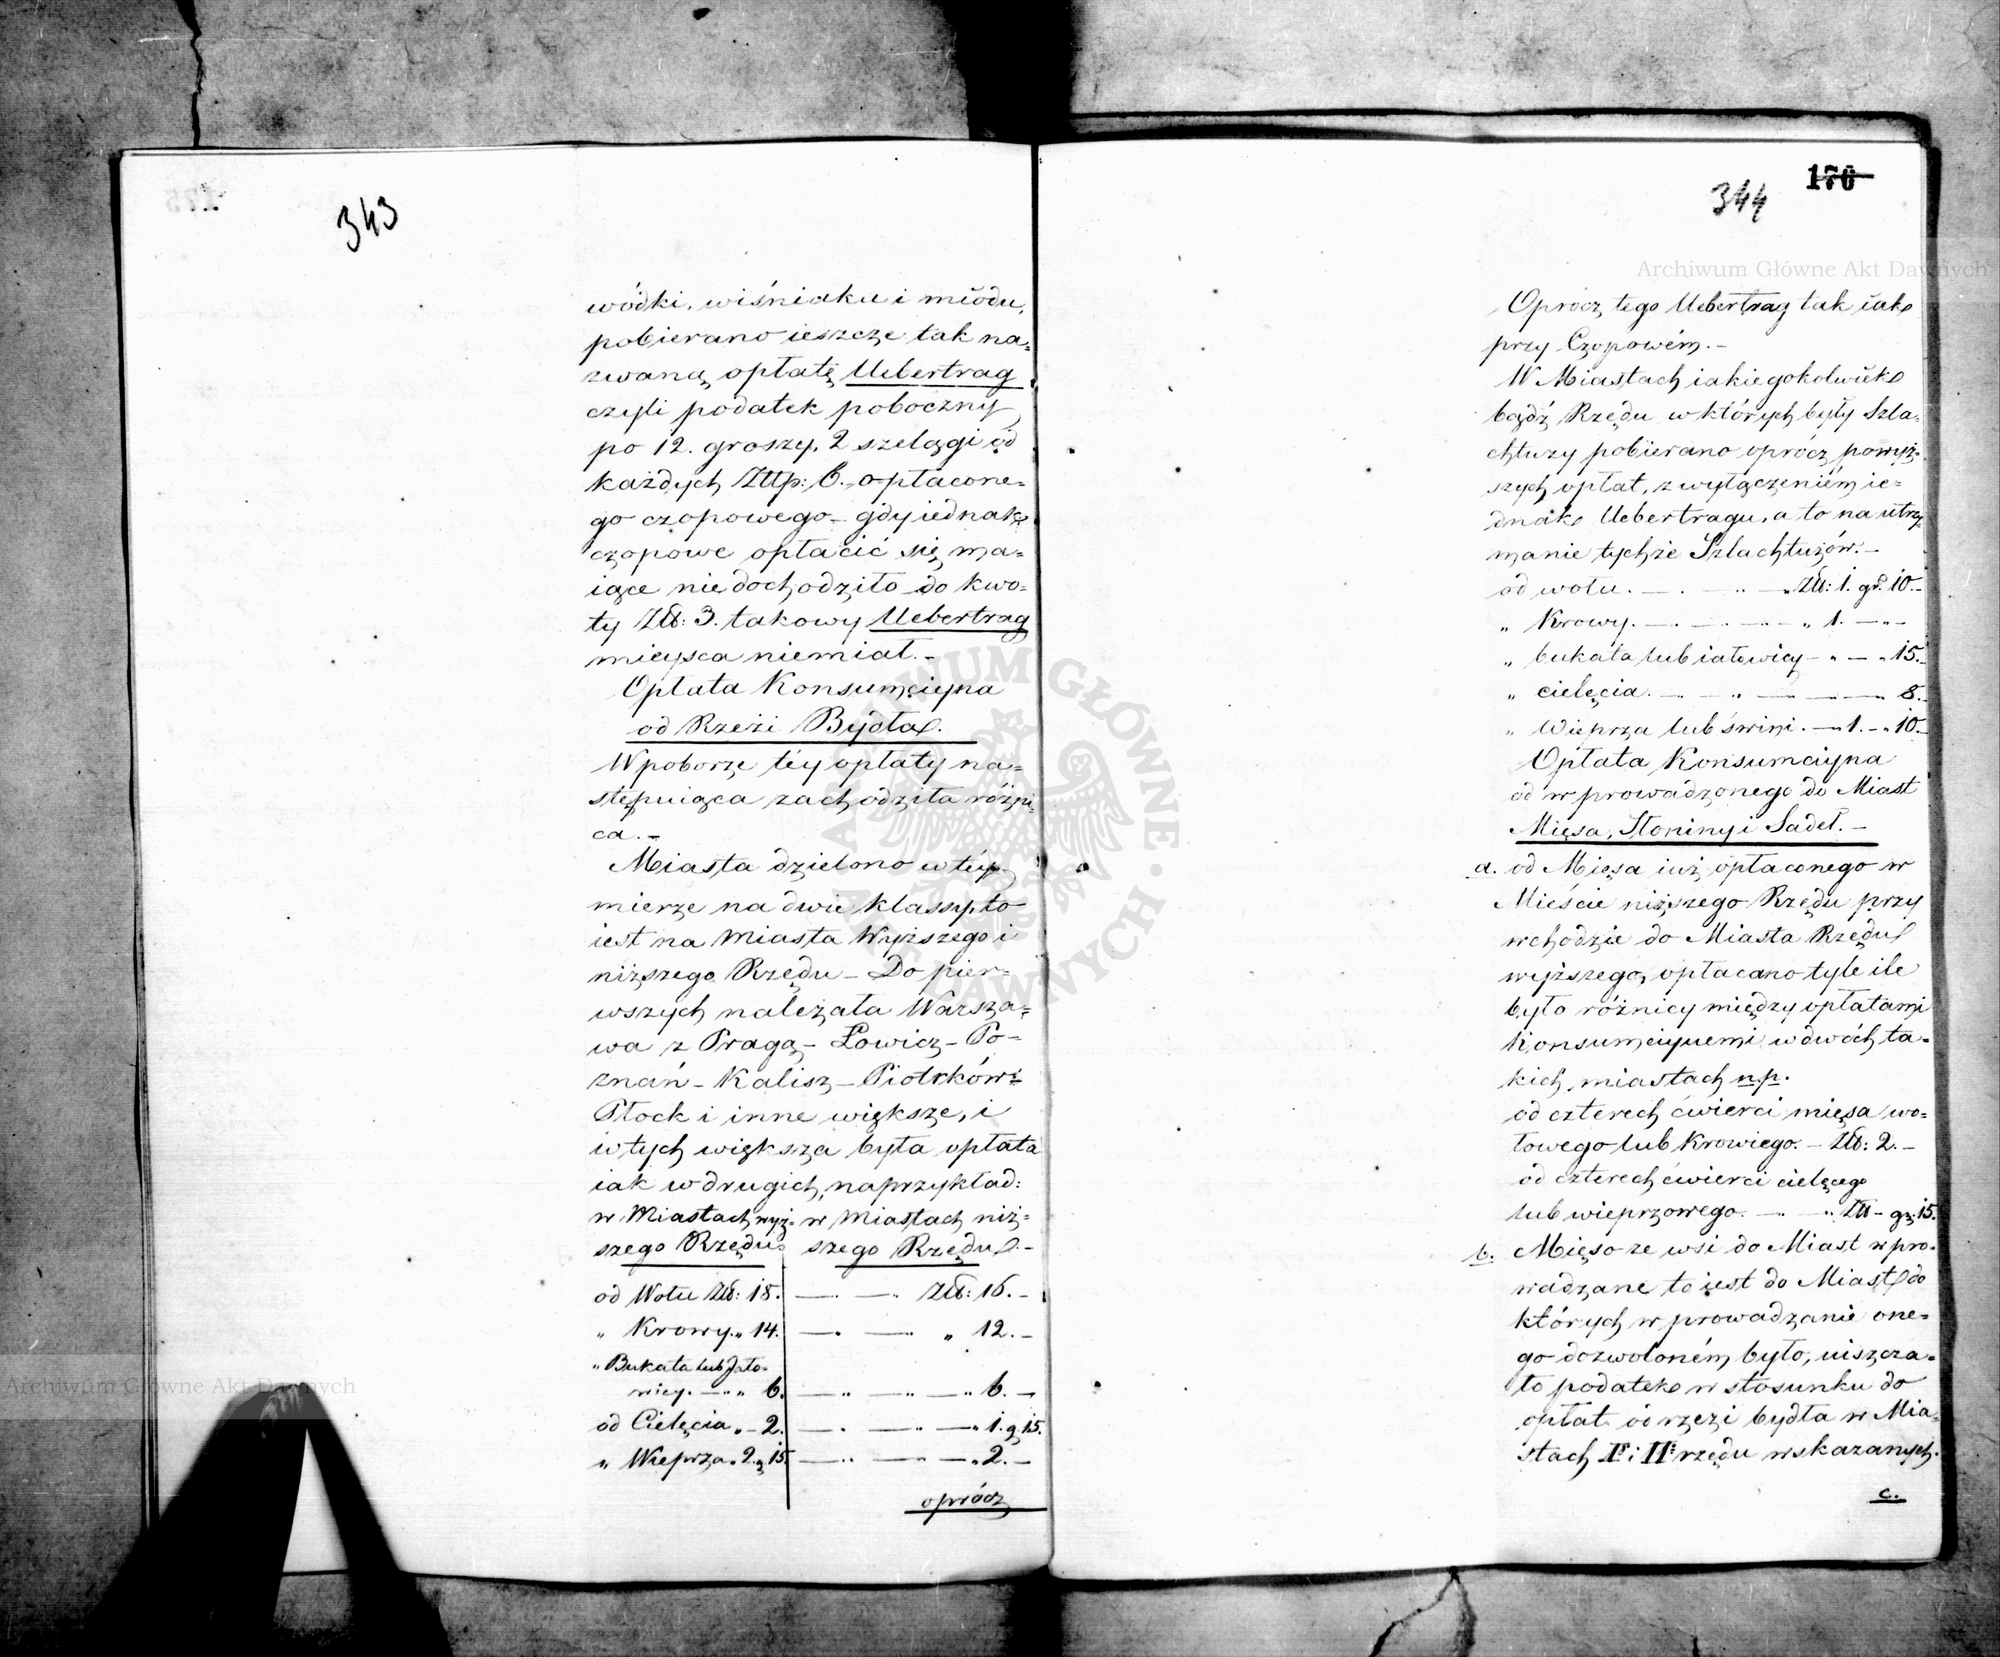 343
wódki, wiśniaku i miodu,
pobierano ieszcze tak na=
zwaną opłatę Uebertrag
czyli podatek poboczny
po 12. groszy, 2 szelągi od
każdych Złłp: 6. opłacone=
go czopowego – gdy iednak
czopowe opłacić się ma=
iące niedochodziło do kwo=
ty Złł: 3. takowy Uebertrag
mieysca niemiał. –
Opłata Konsumcyina
od Rzezi Bydła.
W poborze téy opłaty na=
stępuiąca zachodziła różni=
ca. –
Miasta dzielono w téy
mierze na dwie klassy, to
iest na Miasta Wyższego i
niższego Rzędu – Do pier=
wszych należała Warsza=
wa z Pragą – Łowicz – Po=
znań – Kalisz – Piotrków –
Płock i inne większe, i
w tych większa była opłata
iak w drugich, naprzykład:
w Miastach wyż= w Miastach niż=
szego Rzędu szego Rzędu. –
od Wołu Złł: 18. — — Złł: 16. –
„ Krowy „ 14. — „ — „ 12. –
„ Bukata lub Jało=
wicy. — „ 6. — „ — „ — „ 6. –
od Cielęcia „ – 2. — „ — „ — „ 1. g 15.
„ Wieprza „ 2. g 15. — „ — „ — „ 2. –
oprócz
176
344
Oprócz tego Uebertrag tak iak
przy Czopowém. –
W Miastach iakiegokolwiek
bądź Rzędu w których były Szla=
chtuzy pobierano oprócz powyż=
szych opłat, z wyłączeniém ie=
dnak Uebertragu, a to na utrzy=
manie tychże Szlachtuzów. –
od wołu. — „ — „ Złł: 1. gr. 10. –
„ Krowy. — „ — „ — „ 1. — „ –
„ bukata lub iałowicy – „ — „ 15. –
„ cielęcia. — „ — „ — 8. –
„ Wieprza lub świni. — 1. – „ 10. –
Opłata Konsumcyina
od wprowadzonego do Miast
Mięsa, Słoniny i Sadeł. –
a. od Mięsa iuż opłaconego w
Mieście niższego Rzędu przy
wchodzie do Miasta Rzędu
wyższego, opłacano tyle ile
było różnicy między opłatami
Konsumcyinemi w dwóch ta=
kich miastach np.
od czterech ćwierci mięsa wo=
łowego lub Krowiego. – Złł: 2. –
od czterech ćwierci cielęcego
lub wieprzowego. — „ Złł – gr. 15.
b. Mięso ze wsi do Miast wpro=
wadzane to iest do Miast do
których wprowadzanie one=
go dozwoloném było, uiszcza=
ło podatek w stosunku do
opłat od rzezi bydła w Mia=
stach Io i IIo rzędu wskazanych.
c.
Archiwum Główne Akt Dawnych
Archiwum Główne Akt Dawnych
ARCHIWUM GŁÓWNE AKT DAWNYCH